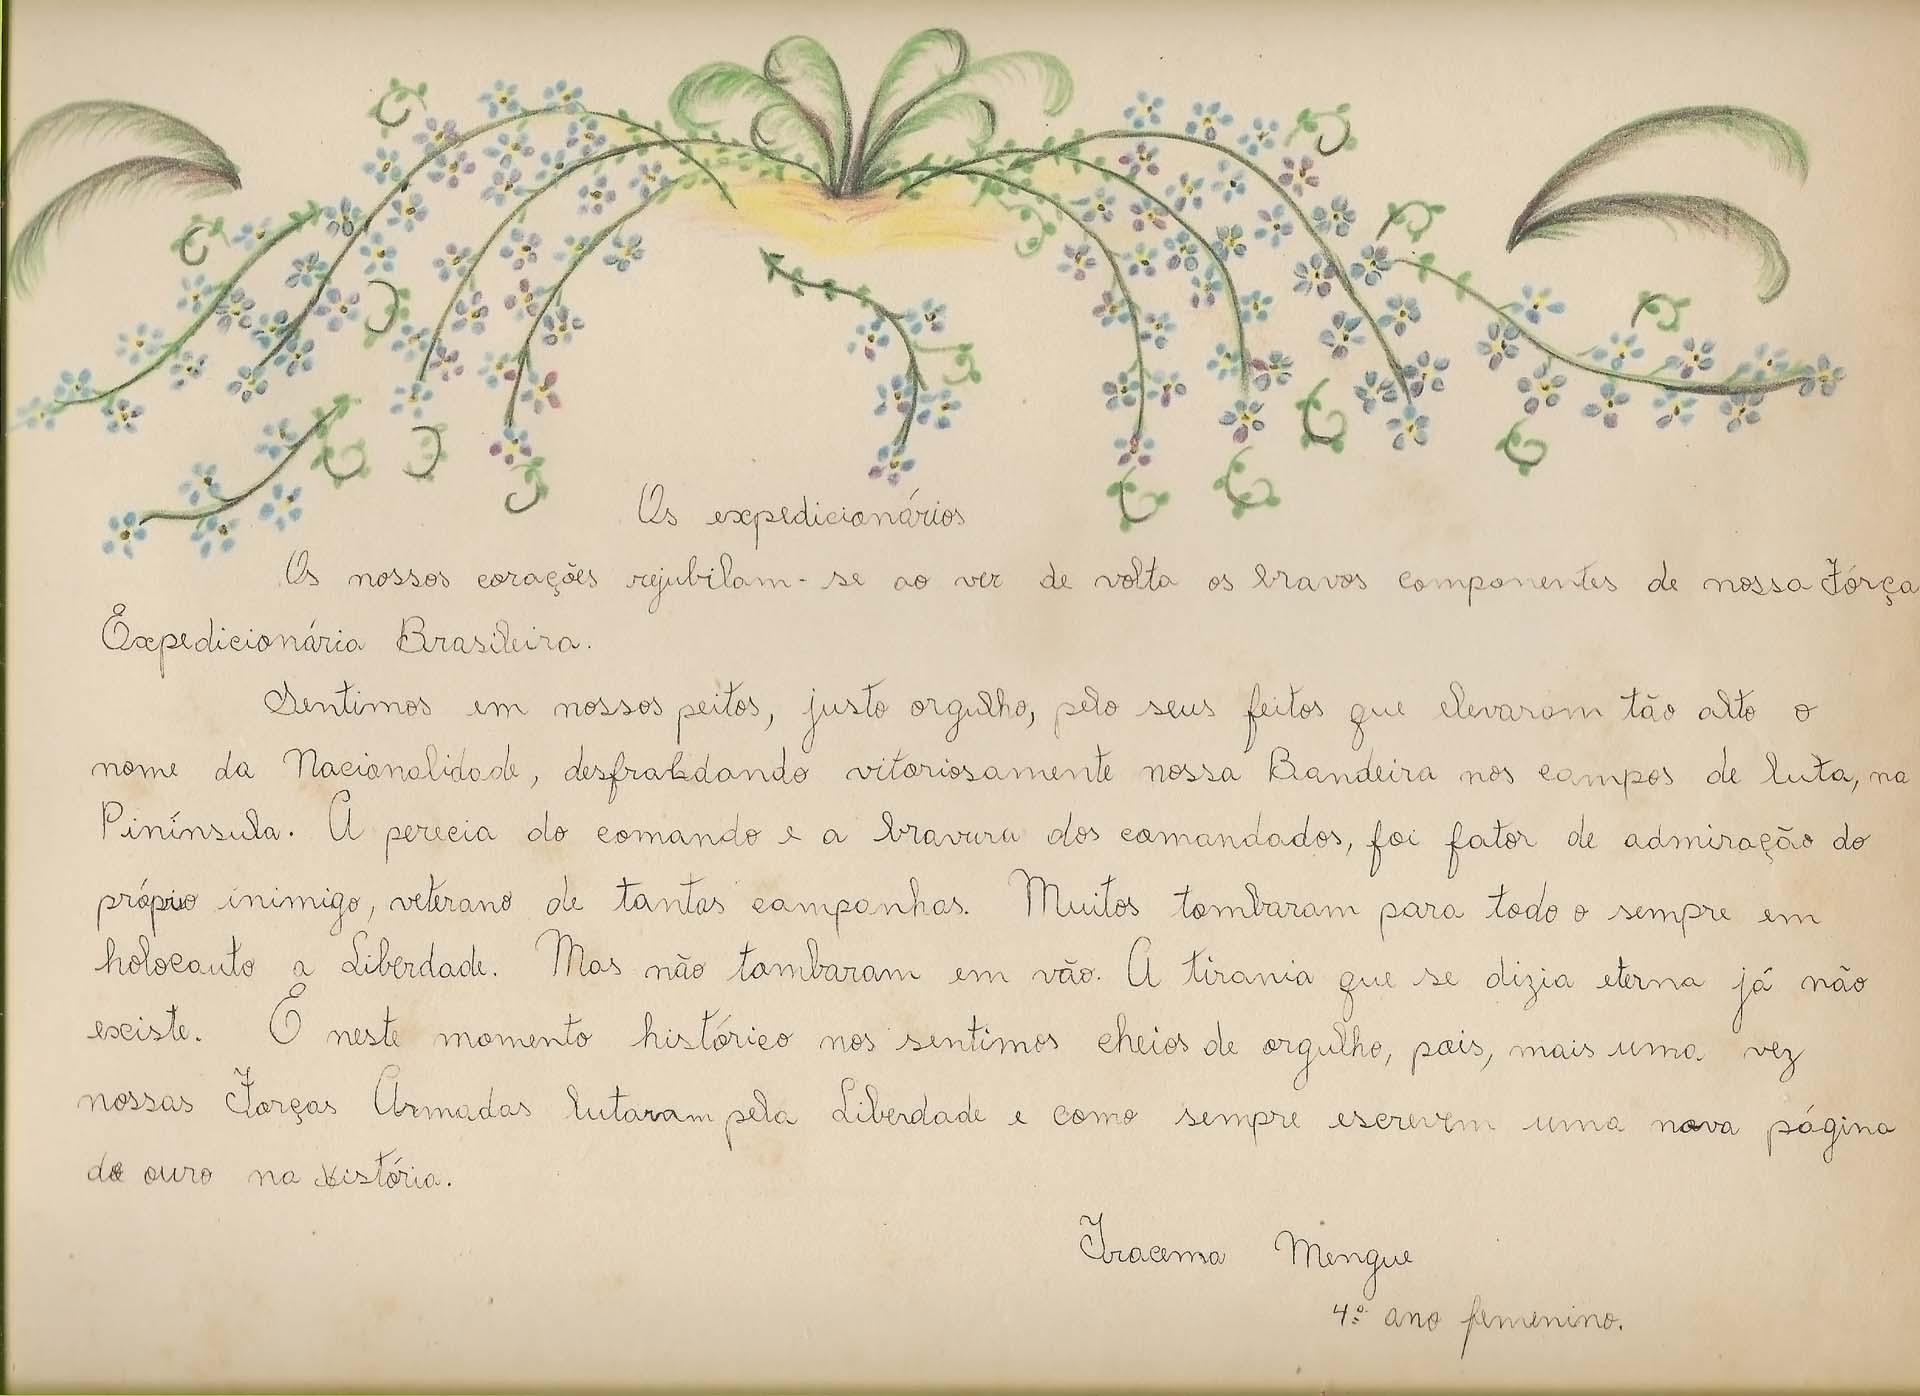 Os expedicionários
Os nossos corações rejubilam-se ao ver de volta os bravos componentes de nossa Fórça
Expedicionária Brasileira.
Sentimos em nossos peitos, justo orgulho, pelo seus feitos que elevaram tão alto o
nome da Nacionalidade, desfraldando vitoriosamente nossa Bandeira nos campos de luta, na
Pinínsula. A perecia do comando e a bravura dos comandados, foi fator de admiração do
próprio inimigo, veterano de tantas campanhas. Muitos tombaram para todo o sempre em
holocauto a Liberdade. Mas não tombaram em vão. A tirania que se dizia eterna já não
existe. E neste momento histórico nos sentimos cheios de orgulho, pois, mais uma vez
nossas Forças Armadas lutaram pela Liberdade e como sempre escrevem uma nova página
de ouro na história.
Iracema Mengue
4º ano femenino.